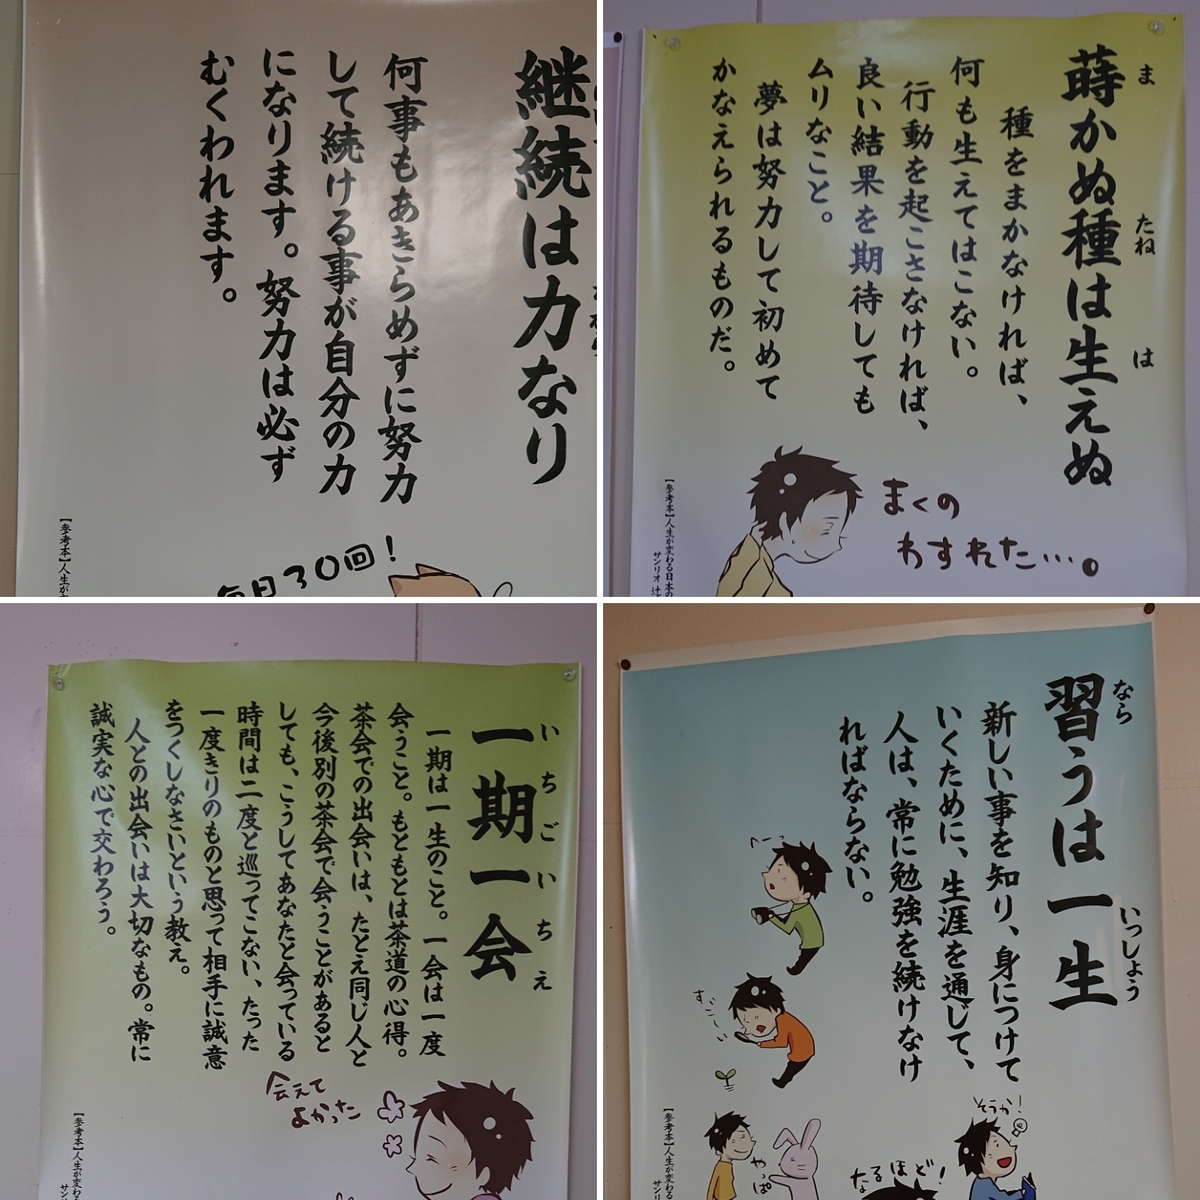 継続は力なり
何事もあきらめずに努力
して続ける事が自分の力
になります。努力は必ず
むくわれます。
毎日30回!
【参考本】人生が
蒔かぬ種は生えぬ
ま
たね
は
種をまかなければ、
何も生えてはこない。
行動を起こさなければ、
良い結果を期待しても
ムリなこと。
夢は努力して初めて
かなえられるものだ。
まくの
わすれた…。
【参考本】人生が変わる日本の
サンリオ 辻
一期一会
いちごいちえ
一期は一生のこと。一会は一度
会うこと。もともとは茶道の心得。
茶会での出会いは、たとえ同じ人と
今後別の茶会で会うことがあると
しても、こうしてあなたと会っている
時間は二度と巡ってこない、たった
一度きりのものと思って相手に誠意
をつくしなさいという教え。
人との出会いは大切なもの。常に
誠実な心で交わろう。
会えて
よかった
【参考本】人生が変わる
サンリ
習うは一生
なら
いっしょう
新しい事を知り、身につけて
いくために、生涯を通じて、
人は、常に勉強を続けなけ
ればならない。
すご〜い
そうか!
やっぱ
なるほど!
【参考本】人生が変わる